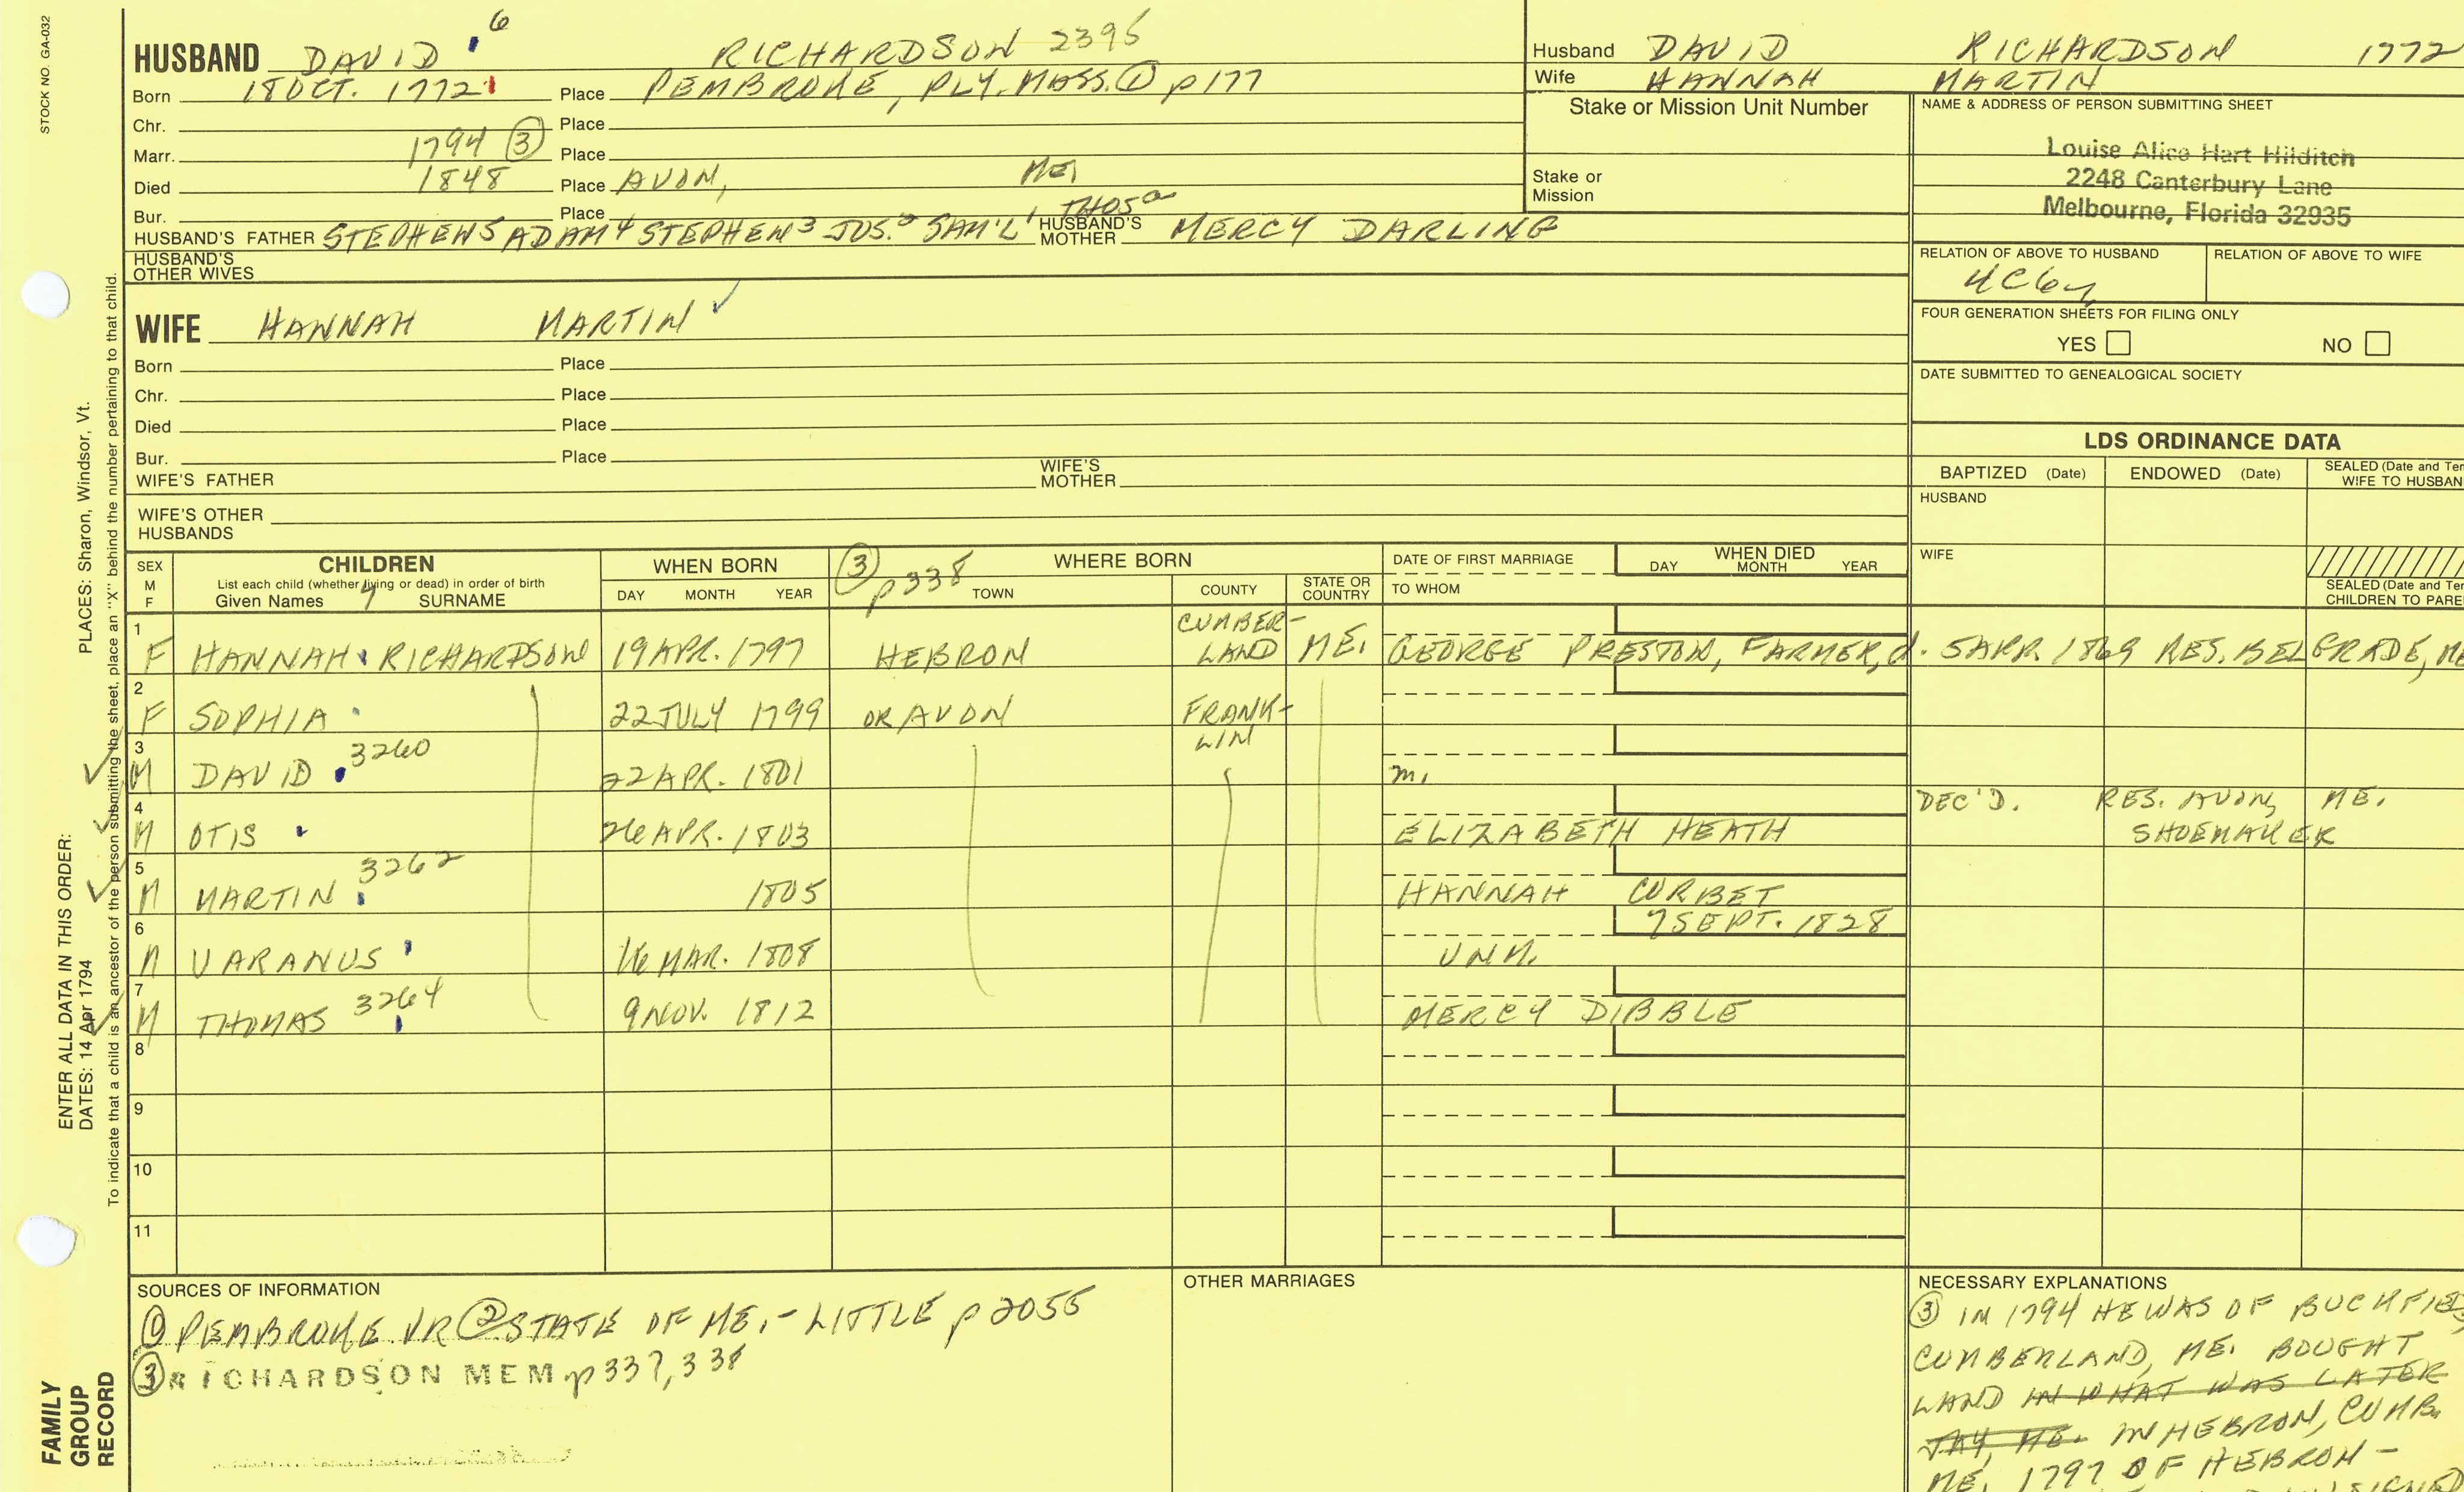 STOCK NO. GA-032
HUSBAND DAVID 6 RICHARDSON 2395
Born 18 OCT. 1772 Place PEMBROKE, PLY. MASS. ① p 177
Chr. Place
Marr. 1794 ③ Place
Died 1848 Place AVON, ME.
Bur. Place
HUSBAND'S FATHER STEPHEN 5 ADAM 4 STEPHEN 3 JOS. 2 SAM'L 1 THOS a HUSBAND'S MOTHER MERCY DARLING
HUSBAND'S OTHER WIVES
Husband DAVID RICHARDSON 1772
Wife HANNAH MARTIN
Stake or Mission Unit Number
Stake or Mission
NAME & ADDRESS OF PERSON SUBMITTING SHEET
Louise Alice Hart Hilditch
2248 Canterbury Lane
Melbourne, Florida 32935
RELATION OF ABOVE TO HUSBAND RELATION OF ABOVE TO WIFE
FOUR GENERATION SHEETS FOR FILING ONLY
YES NO
DATE SUBMITTED TO GENEALOGICAL SOCIETY
WIFE HANNAH MARTIN ✓
Born Place
Chr. Place
Died Place
Bur. Place
WIFE'S FATHER WIFE'S MOTHER
WIFE'S OTHER HUSBANDS
LDS ORDINANCE DATA
BAPTIZED (Date) ENDOWED (Date) SEALED (Date and Tem
WIFE TO HUSBAN
HUSBAND
WIFE
SEALED (Date and Tem
CHILDREN TO PARE
SEX M F CHILDREN WHEN BORN ③ p 338 WHERE BORN DATE OF FIRST MARRIAGE WHEN DIED
List each child (whether living or dead) in order of birth
Given Names SURNAME DAY MONTH YEAR TOWN COUNTY STATE OR COUNTRY TO WHOM DAY MONTH YEAR
1 F HANNAH RICHARDSON 19 APR. 1797 HEBRON CUMBER-LAND ME. GEORGE PRESTON, FARMER, d. 5 APR. 1869 RES. BELGRADE, ME
2 F SOPHIA 22 JULY 1799 OR AVON FRANK-LIN
3 M DAVID 3260 22 APR. 1801 m.
4 M OTIS 26 APR. 1803 ELIZABETH HEATH DEC'D. RES. AVON, ME. SHOEMAKER
5 M MARTIN 3262 1805 HANNAH CORBET
6 M VARANUS 16 MAR. 1808 UNM. 7 SEPT. 1828
7 M THOMAS 3264 9 NOV. 1812 MERCY DIBBLE
8
9
10
11
SOURCES OF INFORMATION
① PEMBROKE VR ② STATE OF ME. - LITTLE p 2055
③ RICHARDSON MEM p 337, 338
OTHER MARRIAGES
NECESSARY EXPLANATIONS
③ IN 1794 HE WAS OF BUCKFIE
CUMBERLAND, ME. BOUGHT
LAND IN WHAT WAS LATER
JAY, ME. IN HEBRON, CUMB.
ME. 1797 OF HEBRON -
PLACES: Sharon, Windsor, Vt.
ENTER ALL DATA IN THIS ORDER:
DATES: 14 Apr 1794
To indicate that a child is an ancestor of the person submitting the sheet, place an "X" behind the number pertaining to that child.
FAMILY
GROUP
RECORD